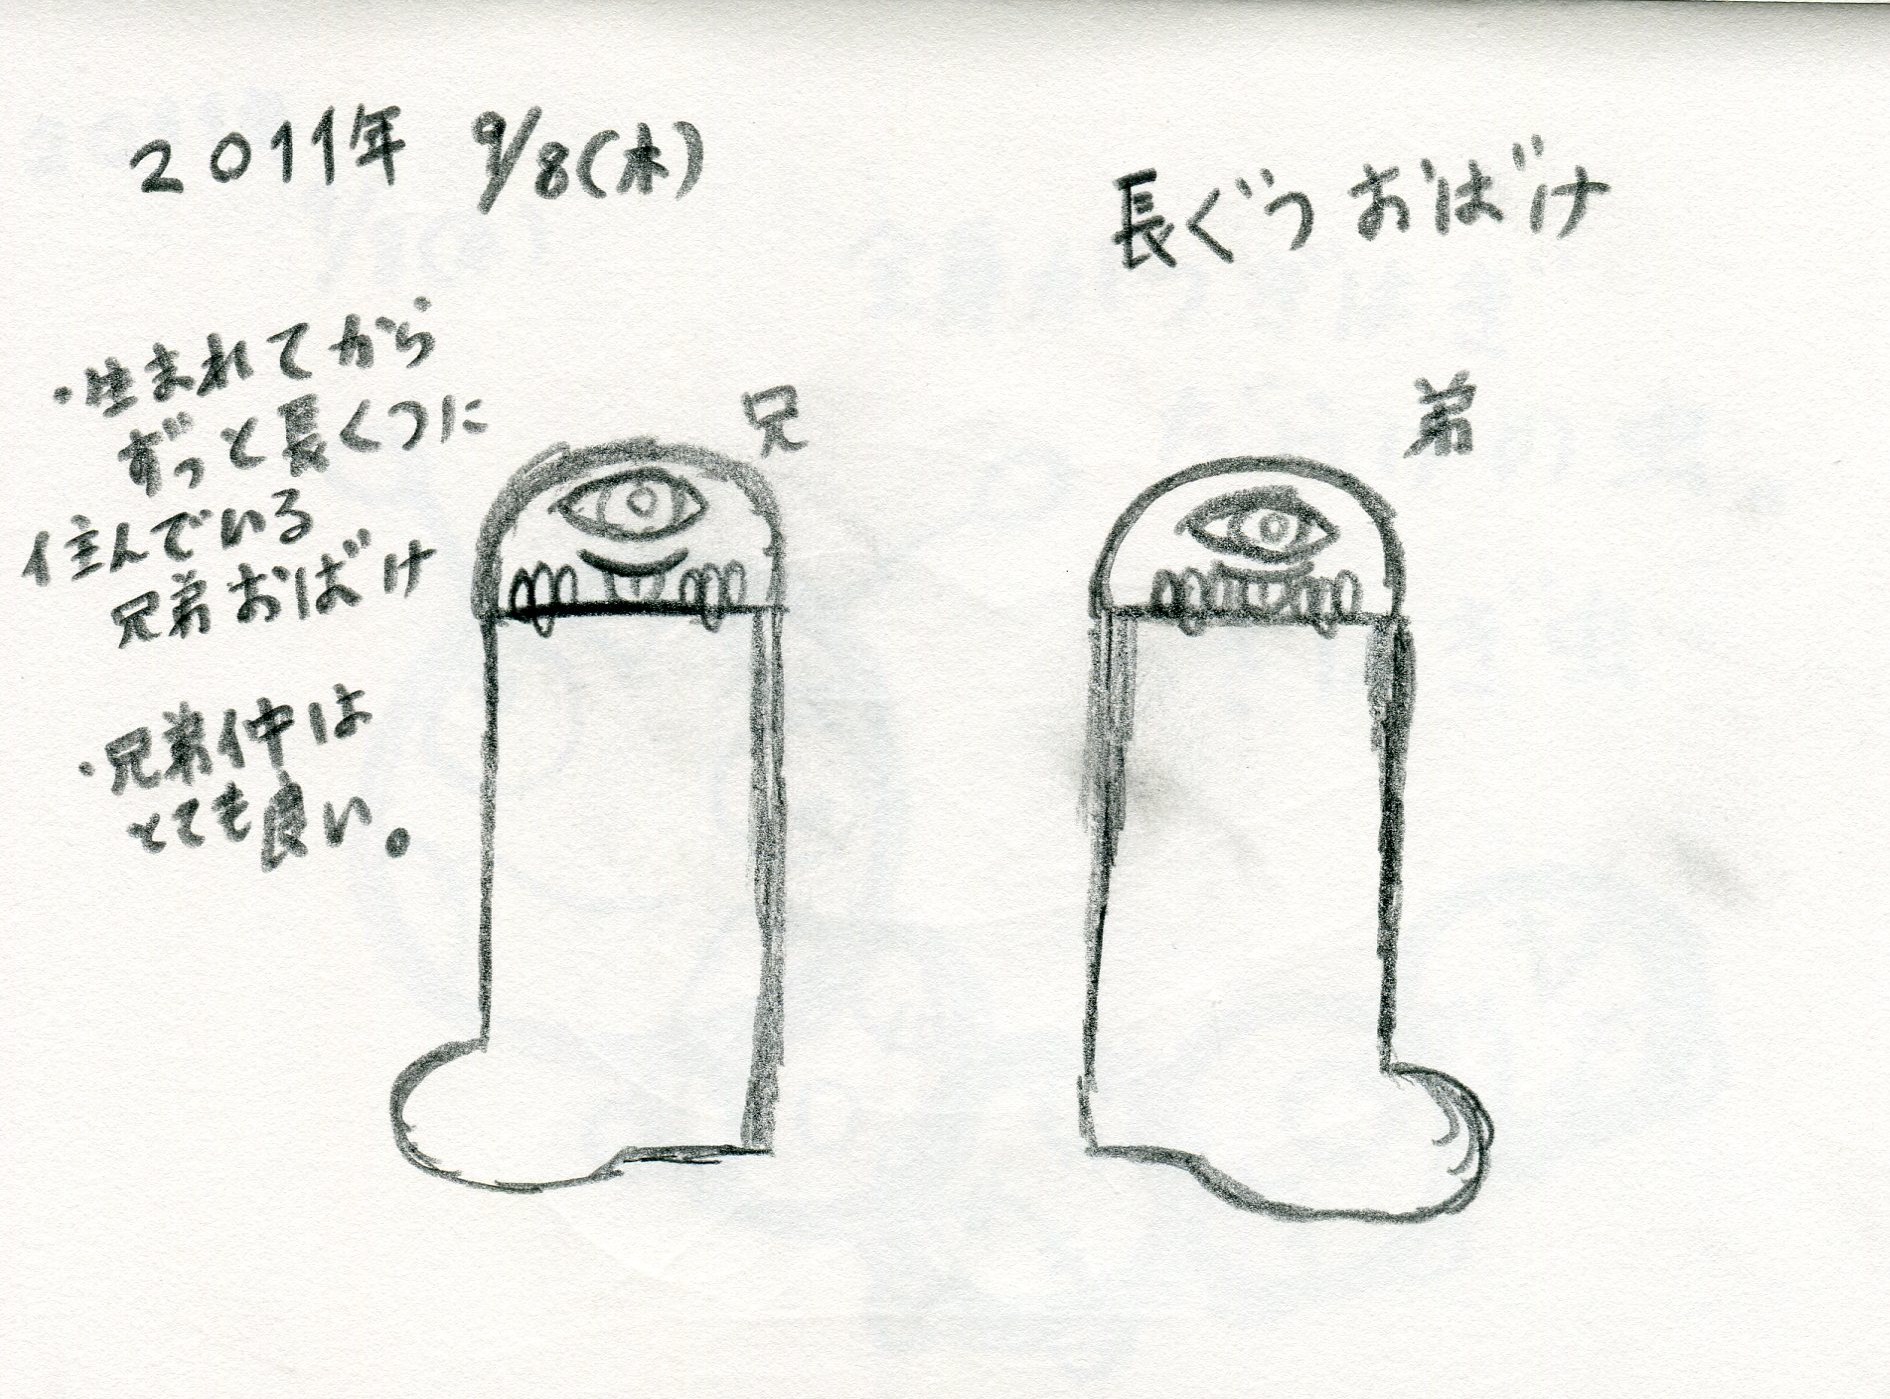 2011年 9/8(木)
長ぐつおばけ
・生まれてから
ずっと長くつに
住んでいる
兄弟おばけ
・兄弟仲は
とても良い。
兄
弟